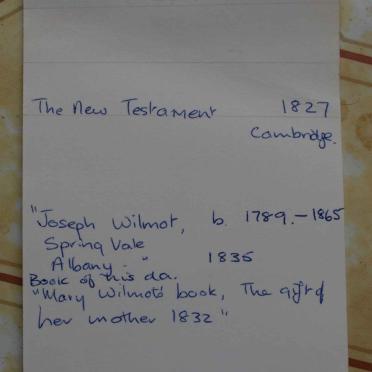 The New Testament 1827
Cambridge.
"Joseph Wilmot, b. 1789.-1865
Spring Vale
Albany." 1835
Book of his da.
"Mary Wilmots' book, The gift of
her mother 1832"